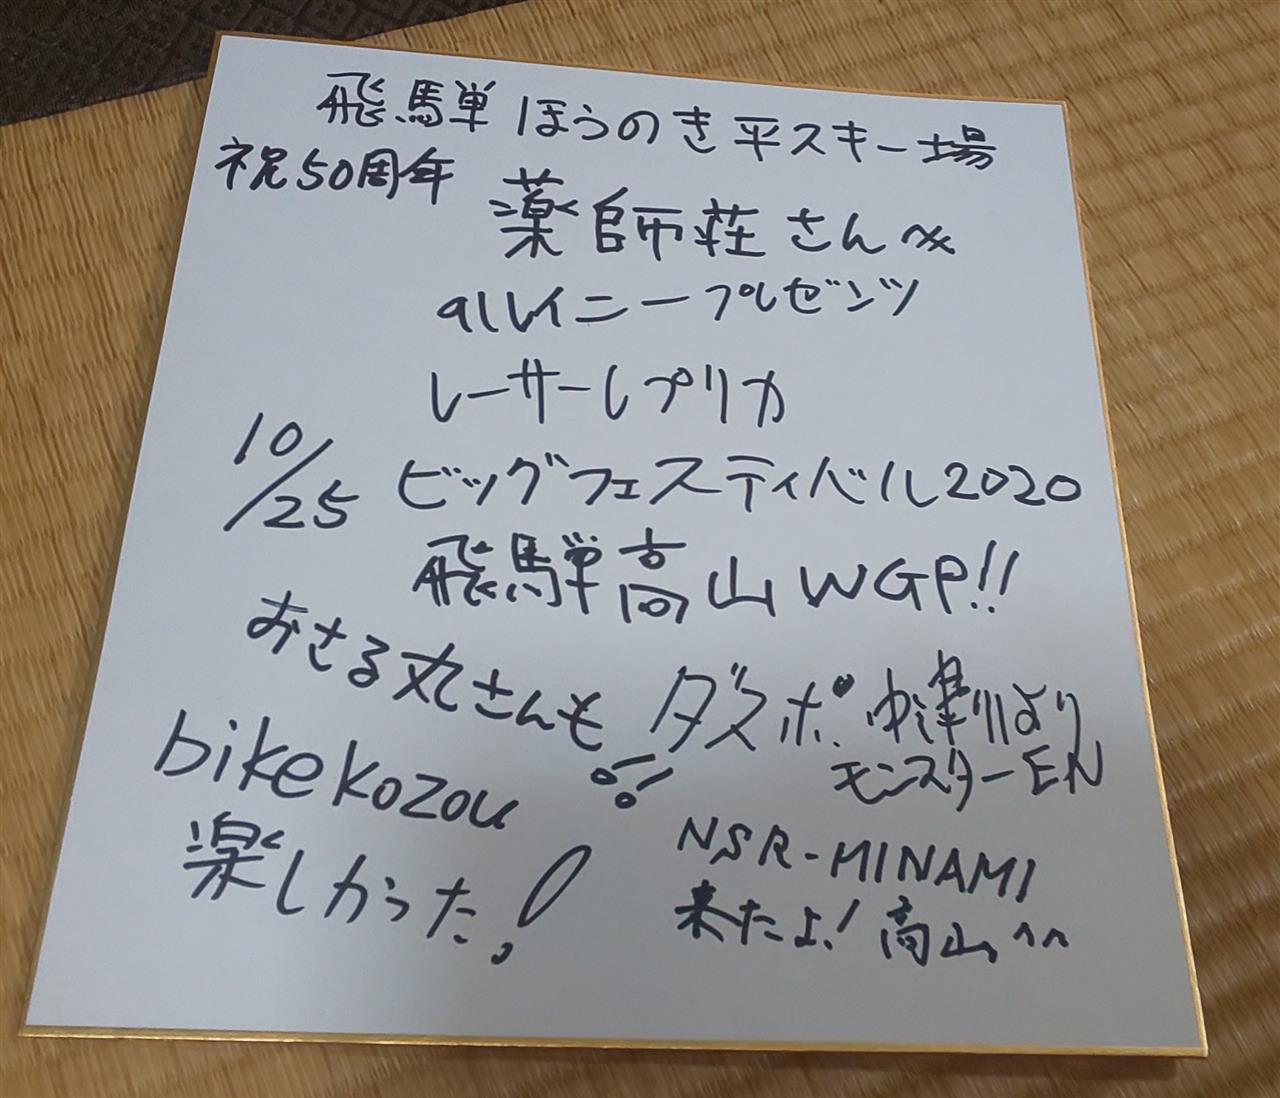 飛騨ほうのき平スキー場
祝50周年
薬師荘さんへ
プレゼンツ
レーサーレプリカ
10/25
ビッグフェスティバル2020
飛騨高山WGP!!
おさる丸さんも!!
ダスポ 中津川より
モンスターEN
bikekozou
楽しかった!
NSR-MINAMI
来たよ!高山^^